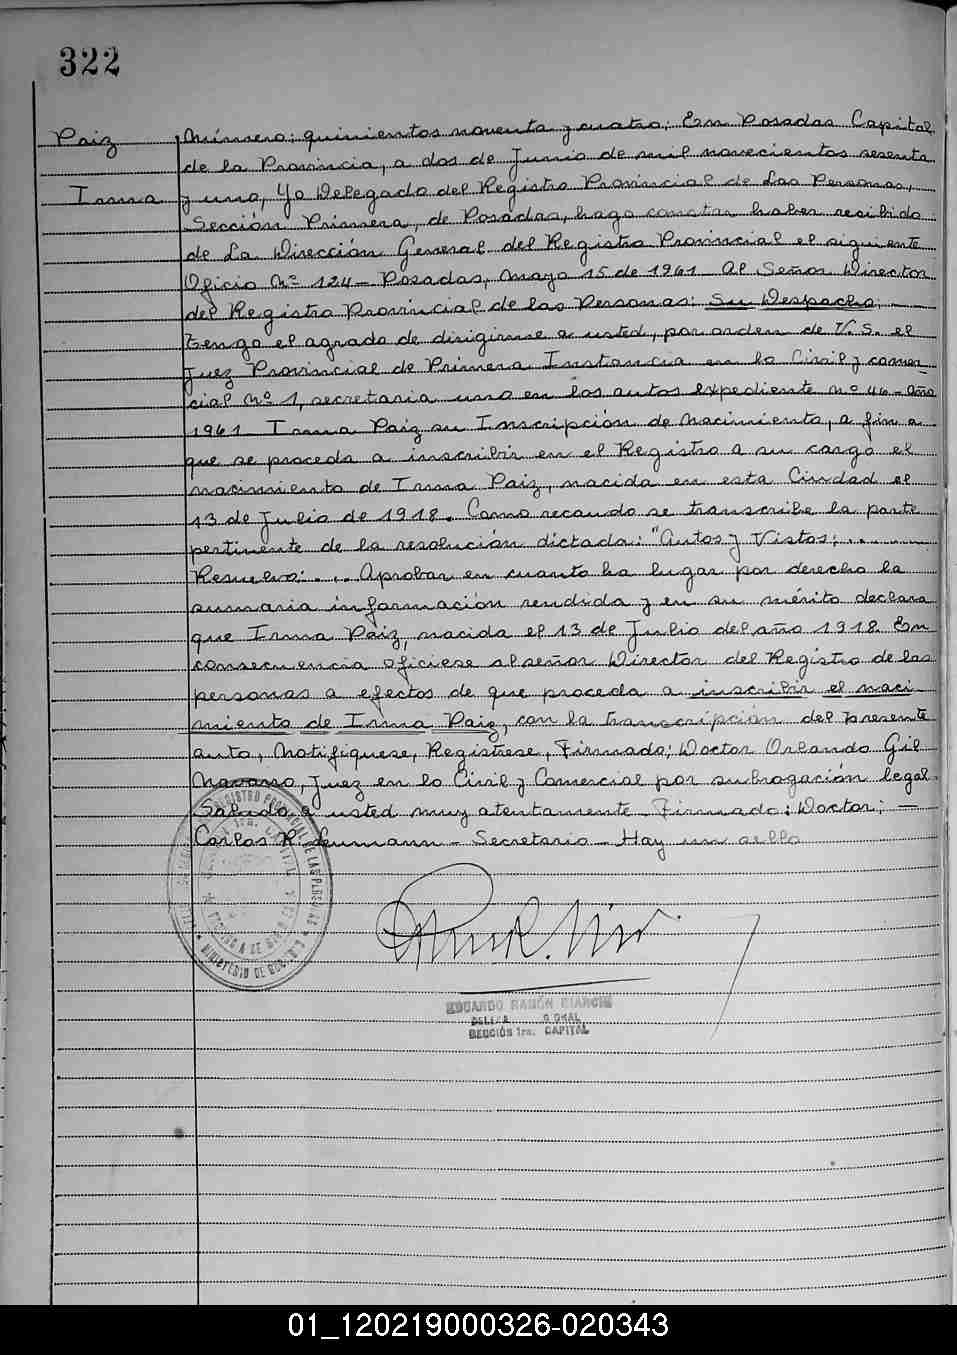 322
Paiz
Irma
Número: quinientos noventa y cuatro: En Posadas Capital
de la Provincia, a dos de Junio de mil novecientos sesenta
y uno, Yo Delegado del Registro Provincial de Las Personas,
Sección Primera, de Posadas, hago constar haber recibido
de La Dirección General del Registro Provincial el siguiente
Oficio Nº 124 - Posadas, Mayo 15 de 1961 - Al Señor Director
del Registro Provincial de las Personas: Su Despacho: -
Tengo el agrado de dirigirme a usted, por orden de V. S. el
Juez Provincial de Primera Instancia en lo Civil y comer
cial Nº 1, secretaria uno en los autos Expediente nº 46 - año
1961 - Irma Paiz su Inscripción de Nacimiento, a fin a
que se proceda a inscribir en el Registro a su cargo el
nacimiento de Irma Paiz, nacida en esta Ciudad el
13 de Julio de 1918. Como recaudo se transcribe la parte
pertinente de la resolución dictada: "Autos y Vistos; ...
Resuelvo: ... Aprobar en cuanto ha lugar por derecho la
sumaria información rendida y en su mérito declara
que Irma Paiz, nacida el 13 de Julio del año 1918. En
consecuencia ofíciese al señor Director del Registro de las
personas a efectos de que proceda a inscribir el naci
miento de Irma Paiz, con la transcripción del presente
auto, Notifíquese, Regístrese, Firmado; Doctor Orlando Gil
Navarro, Juez en lo Civil y Comercial por subrogación legal.
Saludo a usted muy atentamente. Firmado: Doctor: -
Carlos R. Neumann - Secretario - Hay un sello
REGISTRO PROVINCIAL DE LAS PERSONAS
MINISTERIO DE GOBIERNO
EDUARDO RAMÓN BIANCHI
SECCIÓN 1ra. CAPITAL
01_120219000326-020343